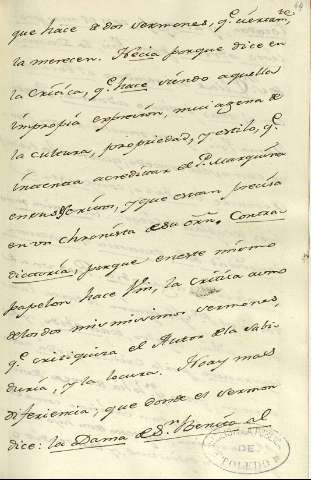 que hace de dos sermones, q.e verdaram.te
la merecen. Necia porque dice en
la Crítica, q.e hace siendo aquella
impropia expresion, mui agena de
la cultura, propriedad, y estilo, q.e
intenta acreditar el P. Marquina
en sus escritos, y que estan precisa
en un Chronista de su orn. Contra-
dictoria, porque en este mismo
papelon hace Vm, la critica a uno
de los dos mismisimos sermones
q.e critiquira el Autor de la Sabi-
duria, y la locura. No ay mas
diferiencia, que donde el sermon
dice: la Dama de S.n Benito el
DE
TOLEDO